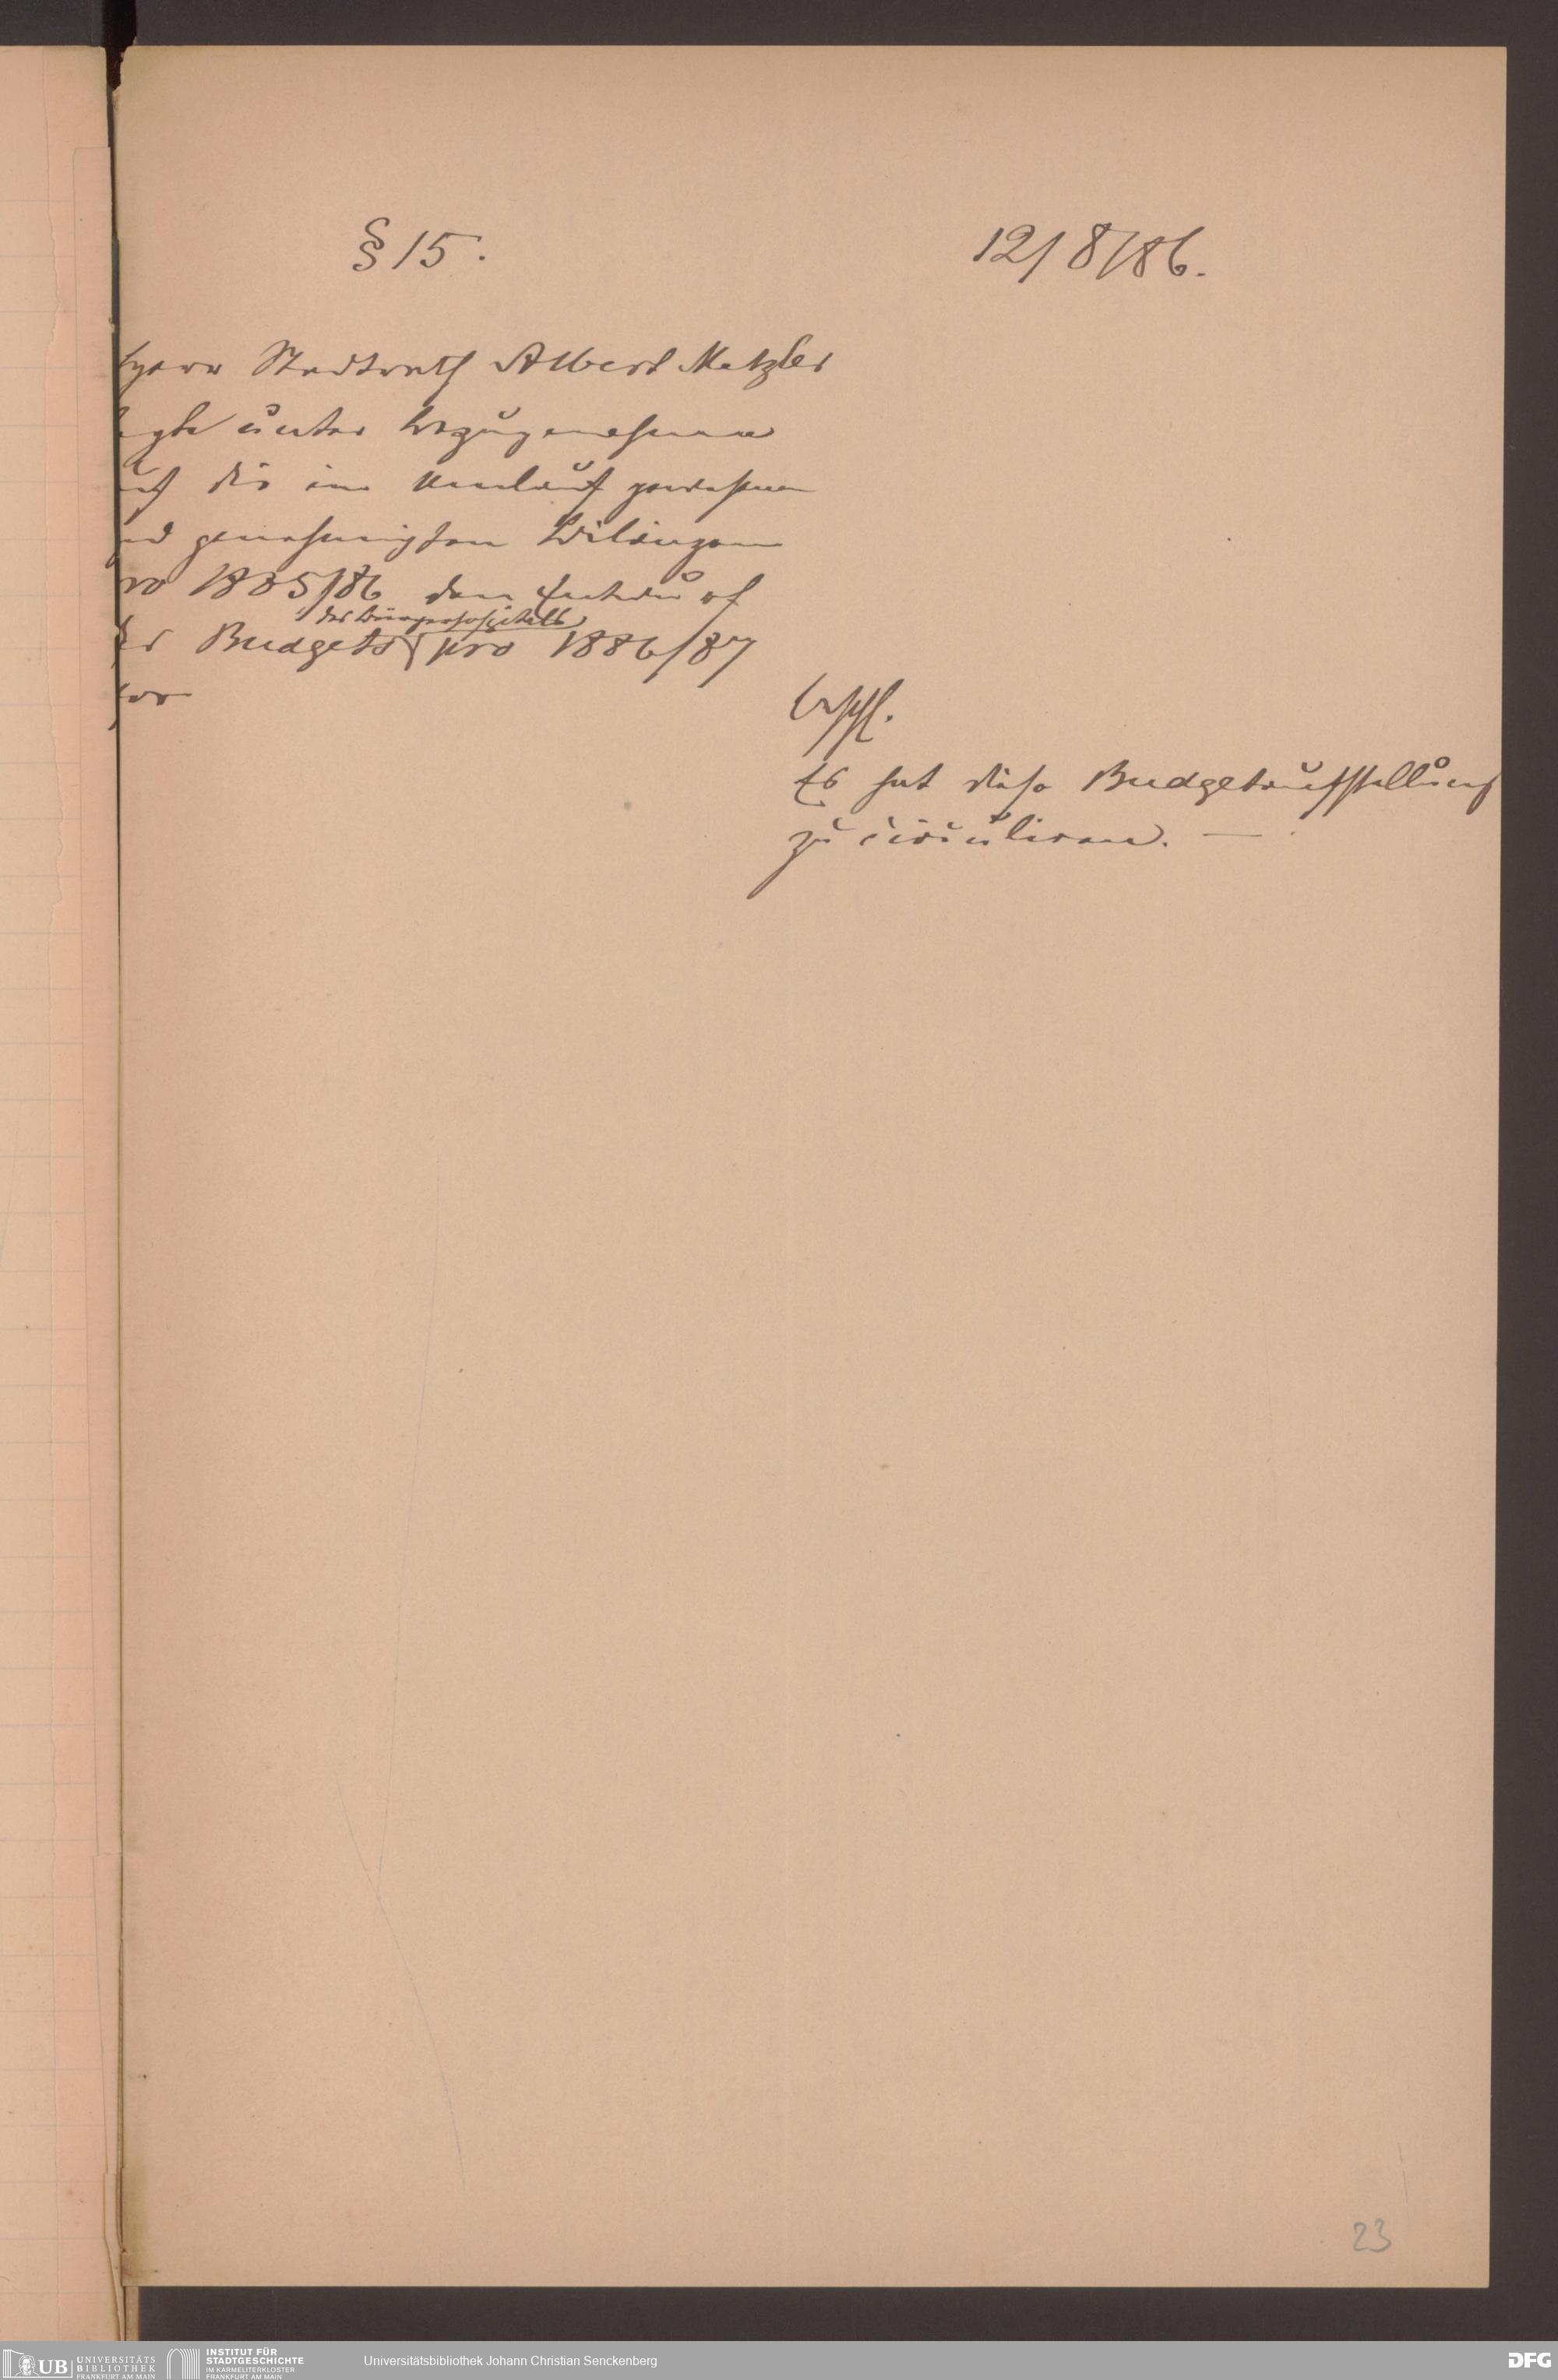 § 15.
12/8/86.
Herr Stadtrath Albert Metzler
legte unter Bezugnahme
auf die im Umlauf gewesenen
und genehmigten Bilanzen
pro 1885/86 den Entwurf
des Bürgerhospitals
des Budgets pro 1886/87
vor
Beschl.
Es hat diese Budgetaufstellung
zu circuliren. —
23
UB UNIVERSITÄTS
BIBLIOTHEK
FRANKFURT AM MAIN
INSTITUT FÜR
STADTGESCHICHTE
IM KARMELITERKLOSTER
FRANKFURT AM MAIN
Universitätsbibliothek Johann Christian Senckenberg
DFG